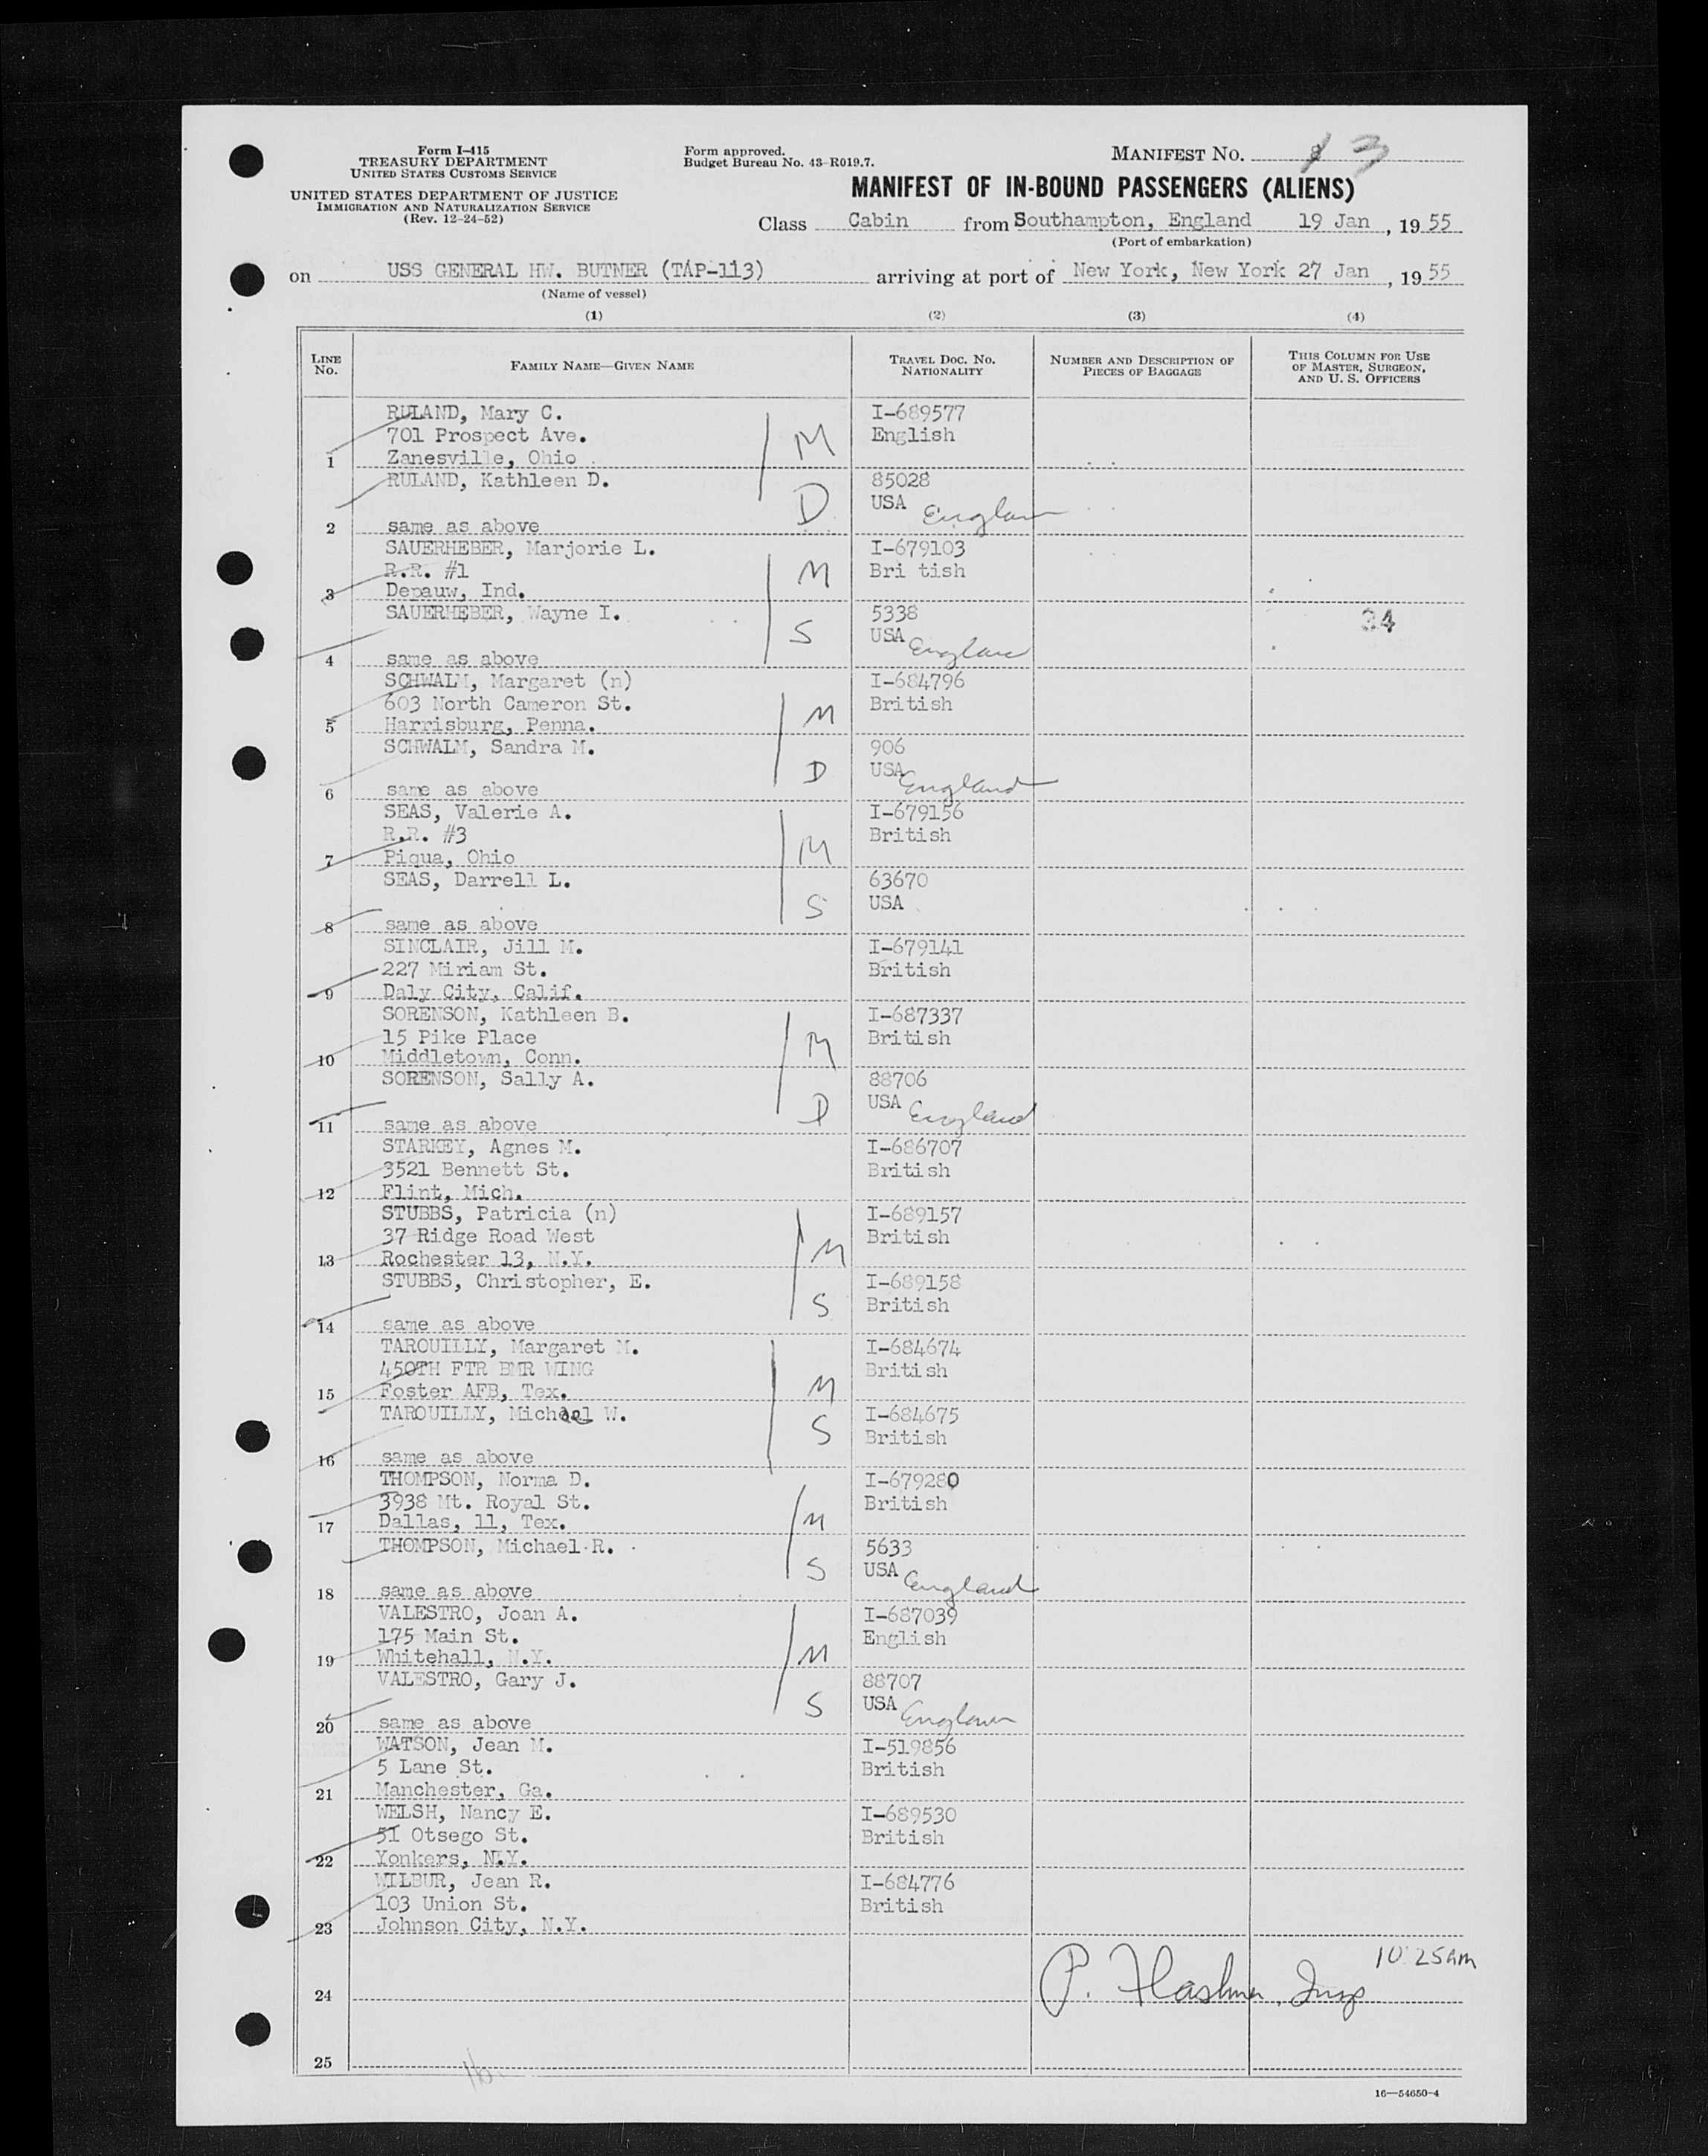 Form I-415
TREASURY DEPARTMENT
UNITED STATES CUSTOMS SERVICE
UNITED STATES DEPARTMENT OF JUSTICE
IMMIGRATION AND NATURALIZATION SERVICE
(Rev. 12-24-52)
Form approved.
Budget Bureau No. 43-R019.7.
MANIFEST NO. 3
MANIFEST OF IN-BOUND PASSENGERS (ALIENS)
Class Cabin from Southampton, England 19 Jan, 1955
(Port of embarkation)
on USS GENERAL HW. BUTNER (TAP-113) arriving at port of New York, New York 27 Jan, 1955
(Name of vessel)
(1) (2) (3) (4)
LINE No. FAMILY NAME—GIVEN NAME TRAVEL DOC. NO. NATIONALITY NUMBER AND DESCRIPTION OF PIECES OF BAGGAGE THIS COLUMN FOR USE OF MASTER, SURGEON, AND U. S. OFFICERS
RULAND, Mary C. I-689577
701 Prospect Ave. M English
1 Zanesville, Ohio
RULAND, Kathleen D. 85028
D USA England
2 same as above
SAUERHEBER, Marjorie L. I-679103
R.R. #1 M Bri tish
3 Depauw, Ind.
SAUERHEBER, Wayne I. 5338 34
S USA England
4 same as above
SCHWALM, Margaret (n) I-684796
603 North Cameron St. M British
5 Harrisburg, Penna.
SCHWALM, Sandra M. 906
D USA England
6 same as above
SEAS, Valerie A. I-679156
R.R. #3 British
7 Piqua, Ohio M
SEAS, Darrell L. 63670
S USA
8 same as above
SINCLAIR, Jill M. I-679141
227 Miriam St. British
9 Daly City, Calif.
SORENSON, Kathleen B. I-687337
15 Pike Place M British
10 Middletown, Conn.
SORENSON, Sally A. 88706
D USA England
11 same as above
STARKEY, Agnes M. I-686707
3521 Bennett St. British
12 Flint, Mich.
STUBBS, Patricia (n) I-689157
37 Ridge Road West M British
13 Rochester 13, N.Y.
STUBBS, Christopher, E. I-689158
S British
14 same as above
TAROUILLY, Margaret M. I-684674
450TH FTR BMR WING British
15 Foster AFB, Tex. M
TAROUILLY, Michael W. I-684675
S British
16 same as above
THOMPSON, Norma D. I-679280
3938 Mt. Royal St. British
17 Dallas, 11, Tex. M
THOMPSON, Michael R. 5633
S USA England
18 same as above
VALESTRO, Joan A. I-687039
175 Main St. English
19 Whitehall, N.Y. M
VALESTRO, Gary J. 88707
S USA England
20 same as above
WATSON, Jean M. I-519856
5 Lane St. British
21 Manchester, Ga.
WELSH, Nancy E. I-689530
51 Otsego St. British
22 Yonkers, N.Y.
WILBUR, Jean R. I-684776
103 Union St. British
23 Johnson City, N.Y.
10 25 am
24 P. Insp
25
16—54650-4